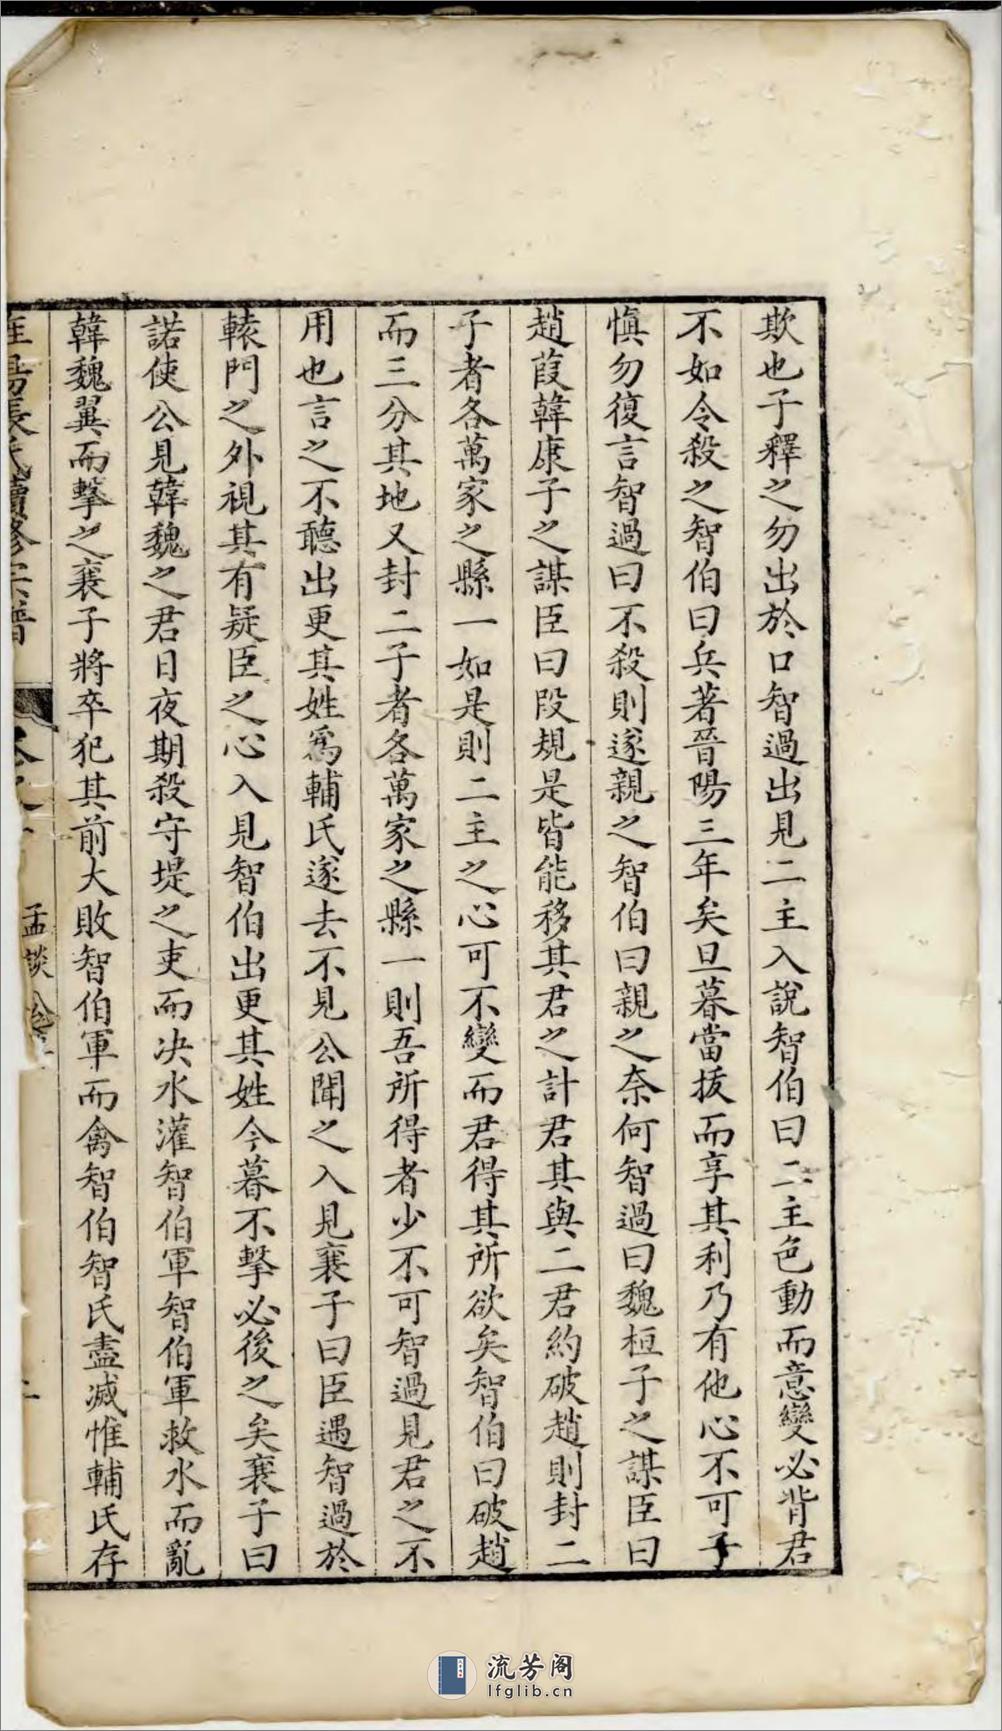 欺也子釋之勿出於口智過出見二主入說智伯曰二主色動而意變必背君
不如令殺之智伯曰兵著晉陽三年矣旦暮當拔而享其利乃有他心不可子
慎勿復言智過曰不殺則遂親之智伯曰親之奈何智過曰魏桓子之謀臣曰
趙葭韓康子之謀臣曰段規是皆能移其君之計君其與二君約破趙則封二
子者各萬家之縣一如是則二主之心可不變而君得其所欲矣智伯曰破趙
而三分其地又封二子者各萬家之縣一則吾所得者少不可智過見君之不
用也言之不聽出更其姓為輔氏遂去不見公聞之入見襄子曰臣遇智過於
轅門之外視其有疑臣之心入見智伯出更其姓今暮不擊必後之矣襄子曰
諾使公見韓魏之君日夜期殺守堤之吏而决水灌智伯軍智伯軍救水而亂
韓魏翼而擊之襄子將卒犯其前大敗智伯軍而禽智伯智氏盡滅惟輔氏存
張氏續修宗譜
孟談公
流芳阁
lfglib.cn